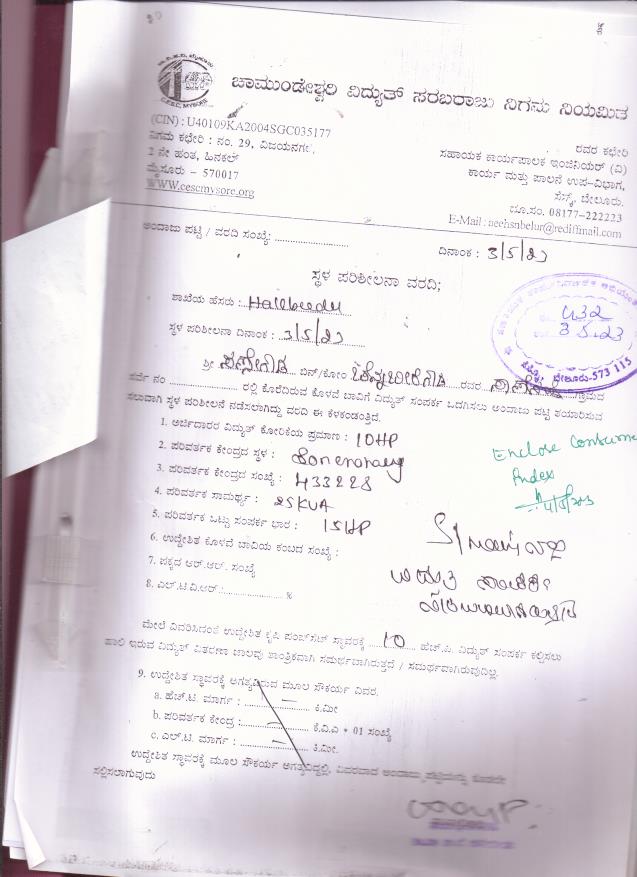 ಚಾಮುಂಡೇಶ್ವರಿ ವಿದ್ಯುತ್ ಸರಬರಾಜು ನಿಗಮ ನಿಯಮಿತ
C.E.S.C, MYSORE
(CIN) : U40109KA2004SGC035177
ನಿಗಮ ಕಛೇರಿ : ನಂ. 29, ವಿಜಯನಗರ,
2 ನೇ ಹಂತ, ಹಿನಕಲ್
ಮೈಸೂರು - 570017
WWW.cescmysore.org
ರವರ ಕಛೇರಿ
ಸಹಾಯಕ ಕಾರ್ಯಪಾಲಕ ಇಂಜಿನಿಯರ್ (ವಿ)
ಕಾರ್ಯ ಮತ್ತು ಪಾಲನೆ ಉಪ-ವಿಭಾಗ,
ಸೆಸ್ಕ್, ಬೇಲೂರು.
ಭೂ.ಸಂ. 08177-222223
E-Mail : aeehsnbelur@rediffmail.com
ಅಂದಾಜು ಪಟ್ಟಿ / ವರದಿ ಸಂಖ್ಯೆ: ......................
ದಿನಾಂಕ : 3/5/23
ಸ್ಥಳ ಪರಿಶೀಲನಾ ವರದಿ;
ಶಾಖೆಯ ಹೆಸರು : Halebeedu
432
3.5.23
ಬೇಲೂರು-573 115
ಸ್ಥಳ ಪರಿಶೀಲನಾ ದಿನಾಂಕ : 3/5/23
ಶ್ರೀ ಬಿನ್/ಕೋಂ ರವರ ಗ್ರಾಮದ
ಸರ್ವೆ ನಂ .................... ರಲ್ಲಿ ಕೊರೆದಿರುವ ಕೊಳವೆ ಬಾವಿಗೆ ವಿದ್ಯುತ್ ಸಂಪರ್ಕ ಒದಗಿಸಲು ಅಂದಾಜು ಪಟ್ಟಿ ತಯಾರಿಸುವ
ಸಲುವಾಗಿ ಸ್ಥಳ ಪರಿಶೀಲನೆ ನಡೆಸಲಾಗಿದ್ದು ವರದಿ ಈ ಕೆಳಕಂಡಂತಿದೆ.
1. ಅರ್ಜಿದಾರರ ವಿದ್ಯುತ್ ಕೋರಿಕೆಯ ಪ್ರಮಾಣ : 10HP
2. ಪರಿವರ್ತಕ ಕೇಂದ್ರದ ಸ್ಥಳ :
3. ಪರಿವರ್ತಕ ಕೇಂದ್ರದ ಸಂಖ್ಯೆ : 433228
4. ಪರಿವರ್ತಕ ಸಾಮರ್ಥ್ಯ : 25KVA
5. ಪರಿವರ್ತಕ ಒಟ್ಟು ಸಂಪರ್ಕ ಭಾರ : 15HP
6. ಉದ್ದೇಶಿತ ಕೊಳವೆ ಬಾವಿಯ ಕಂಬದ ಸಂಖ್ಯೆ :
7. ಪಕ್ಕದ ಆರ್.ಆರ್. ಸಂಖ್ಯೆ
8. ಎಲ್.ಟಿ.ವಿ.ಆರ್ :.................... %
Enclose Consumer
Index
ಮೇಲೆ ವಿವರಿಸಿದಂತೆ ಉದ್ದೇಶಿತ ಕೃಷಿ ಪಂಪ್‌ಸೆಟ್ ಸ್ಥಾವರಕ್ಕೆ 10 ಹೆಚ್.ಪಿ. ವಿದ್ಯುತ್ ಸಂಪರ್ಕ ಕಲ್ಪಿಸಲು
ಹಾಲಿ ಇರುವ ವಿದ್ಯುತ್ ವಿತರಣಾ ಜಾಲವು ತಾಂತ್ರಿಕವಾಗಿ ಸಮರ್ಥವಾಗಿರುತ್ತದೆ / ಸಮರ್ಥವಾಗಿರುವುದಿಲ್ಲ.
9. ಉದ್ದೇಶಿತ ಸ್ಥಾವರಕ್ಕೆ ಅಗತ್ಯವಿರುವ ಮೂಲ ಸೌಕರ್ಯ ವಿವರ.
a. ಹೆಚ್.ಟಿ. ಮಾರ್ಗ : — ಕಿ.ಮೀ
b. ಪರಿವರ್ತಕ ಕೇಂದ್ರ : — ಕೆ.ವಿ.ಎ + 01 ಸಂಖ್ಯೆ
c. ಎಲ್.ಟಿ. ಮಾರ್ಗ : — ಕಿ.ಮೀ.
ಉದ್ದೇಶಿತ ಸ್ಥಾವರಕ್ಕೆ ಮೂಲ ಸೌಕರ್ಯ ಅಗತ್ಯವಿದ್ದಲ್ಲಿ, ವಿವರವಾದ ಅಂದಾಜು ಪಟ್ಟಿಯನ್ನು
ಸಲ್ಲಿಸಲಾಗುವುದು